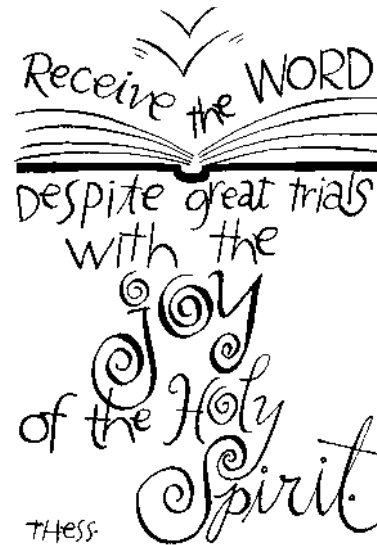 Receive the WORD
Despite great trials
with the
joy
of the Holy
Spirit.
THess.